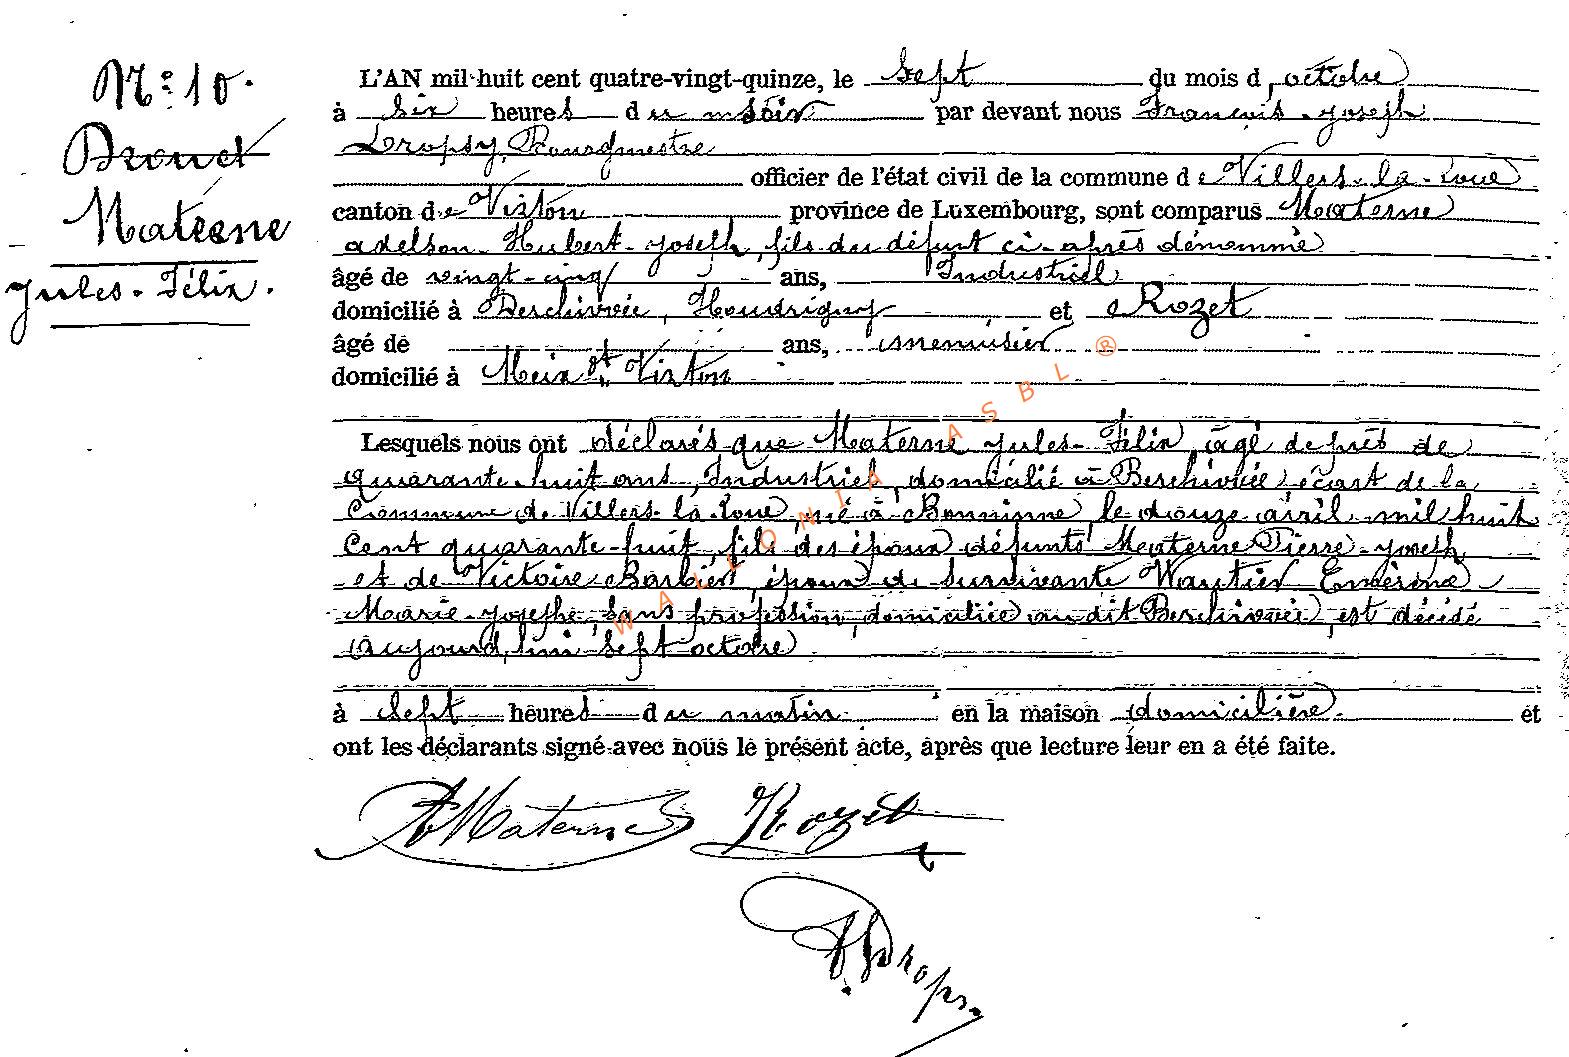 N° 10.
Drouet
Materne
Jules-Félix.
L'AN mil huit cent quatre-vingt-quinze, le sept du mois d'octobre
à six heures du soir par devant nous François-Joseph
Dropsy, Bourgmestre
officier de l'état civil de la commune de Villers-la-Loue
canton de Virton province de Luxembourg, sont comparus Materne
Adelson-Hubert-Joseph, fils du défunt ci-après dénommé
âgé de vingt-cinq ans, Industriel
domicilié à Berchivée, Houdrigny et Rozet
âgé de ans, menuisier
domicilié à Meix dt Virton
Lesquels nous ont déclarés que Materne Jules-Félix, âgé de près de
quarante-huit ans, Industriel, domicilié à Berchivée, écart de la
Commune de Villers-la-Loue, né à Bonninne, le douze avril mil huit
cent quarante-huit, fils des époux défunts Materne Pierre-Joseph
et de Victoire Barbier, époux de survivante Wautier
Marie-Josephe, sans profession, domiciliée au dit Berchivée, est décédé
aujourd'hui sept octobre
à sept heures du matin en la maison domicilière. et
ont les déclarants signé avec nous le présent acte, après que lecture leur en a été faite.
AMaterne Rozet
Drops.
WALLONIA ASBL ®